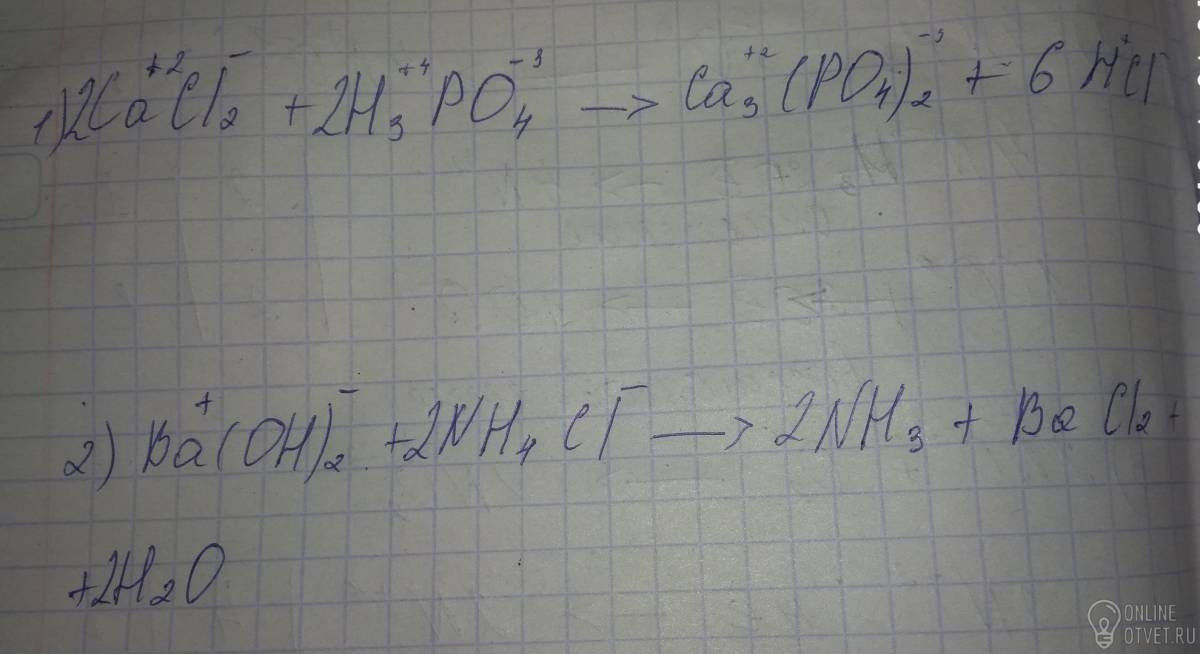 1) 2Ca⁺²Cl₂⁻ + 2H₃⁺⁴PO₄⁻³ → Ca₃⁺²(PO₄)₂⁻³ + 6 H⁺Cl⁻
2) Ba⁺(OH)₂⁻ + 2NH₄Cl⁻ → 2NH₃ + BaCl₂ +
+ 2H₂O
ONLINE
OTVET.RU